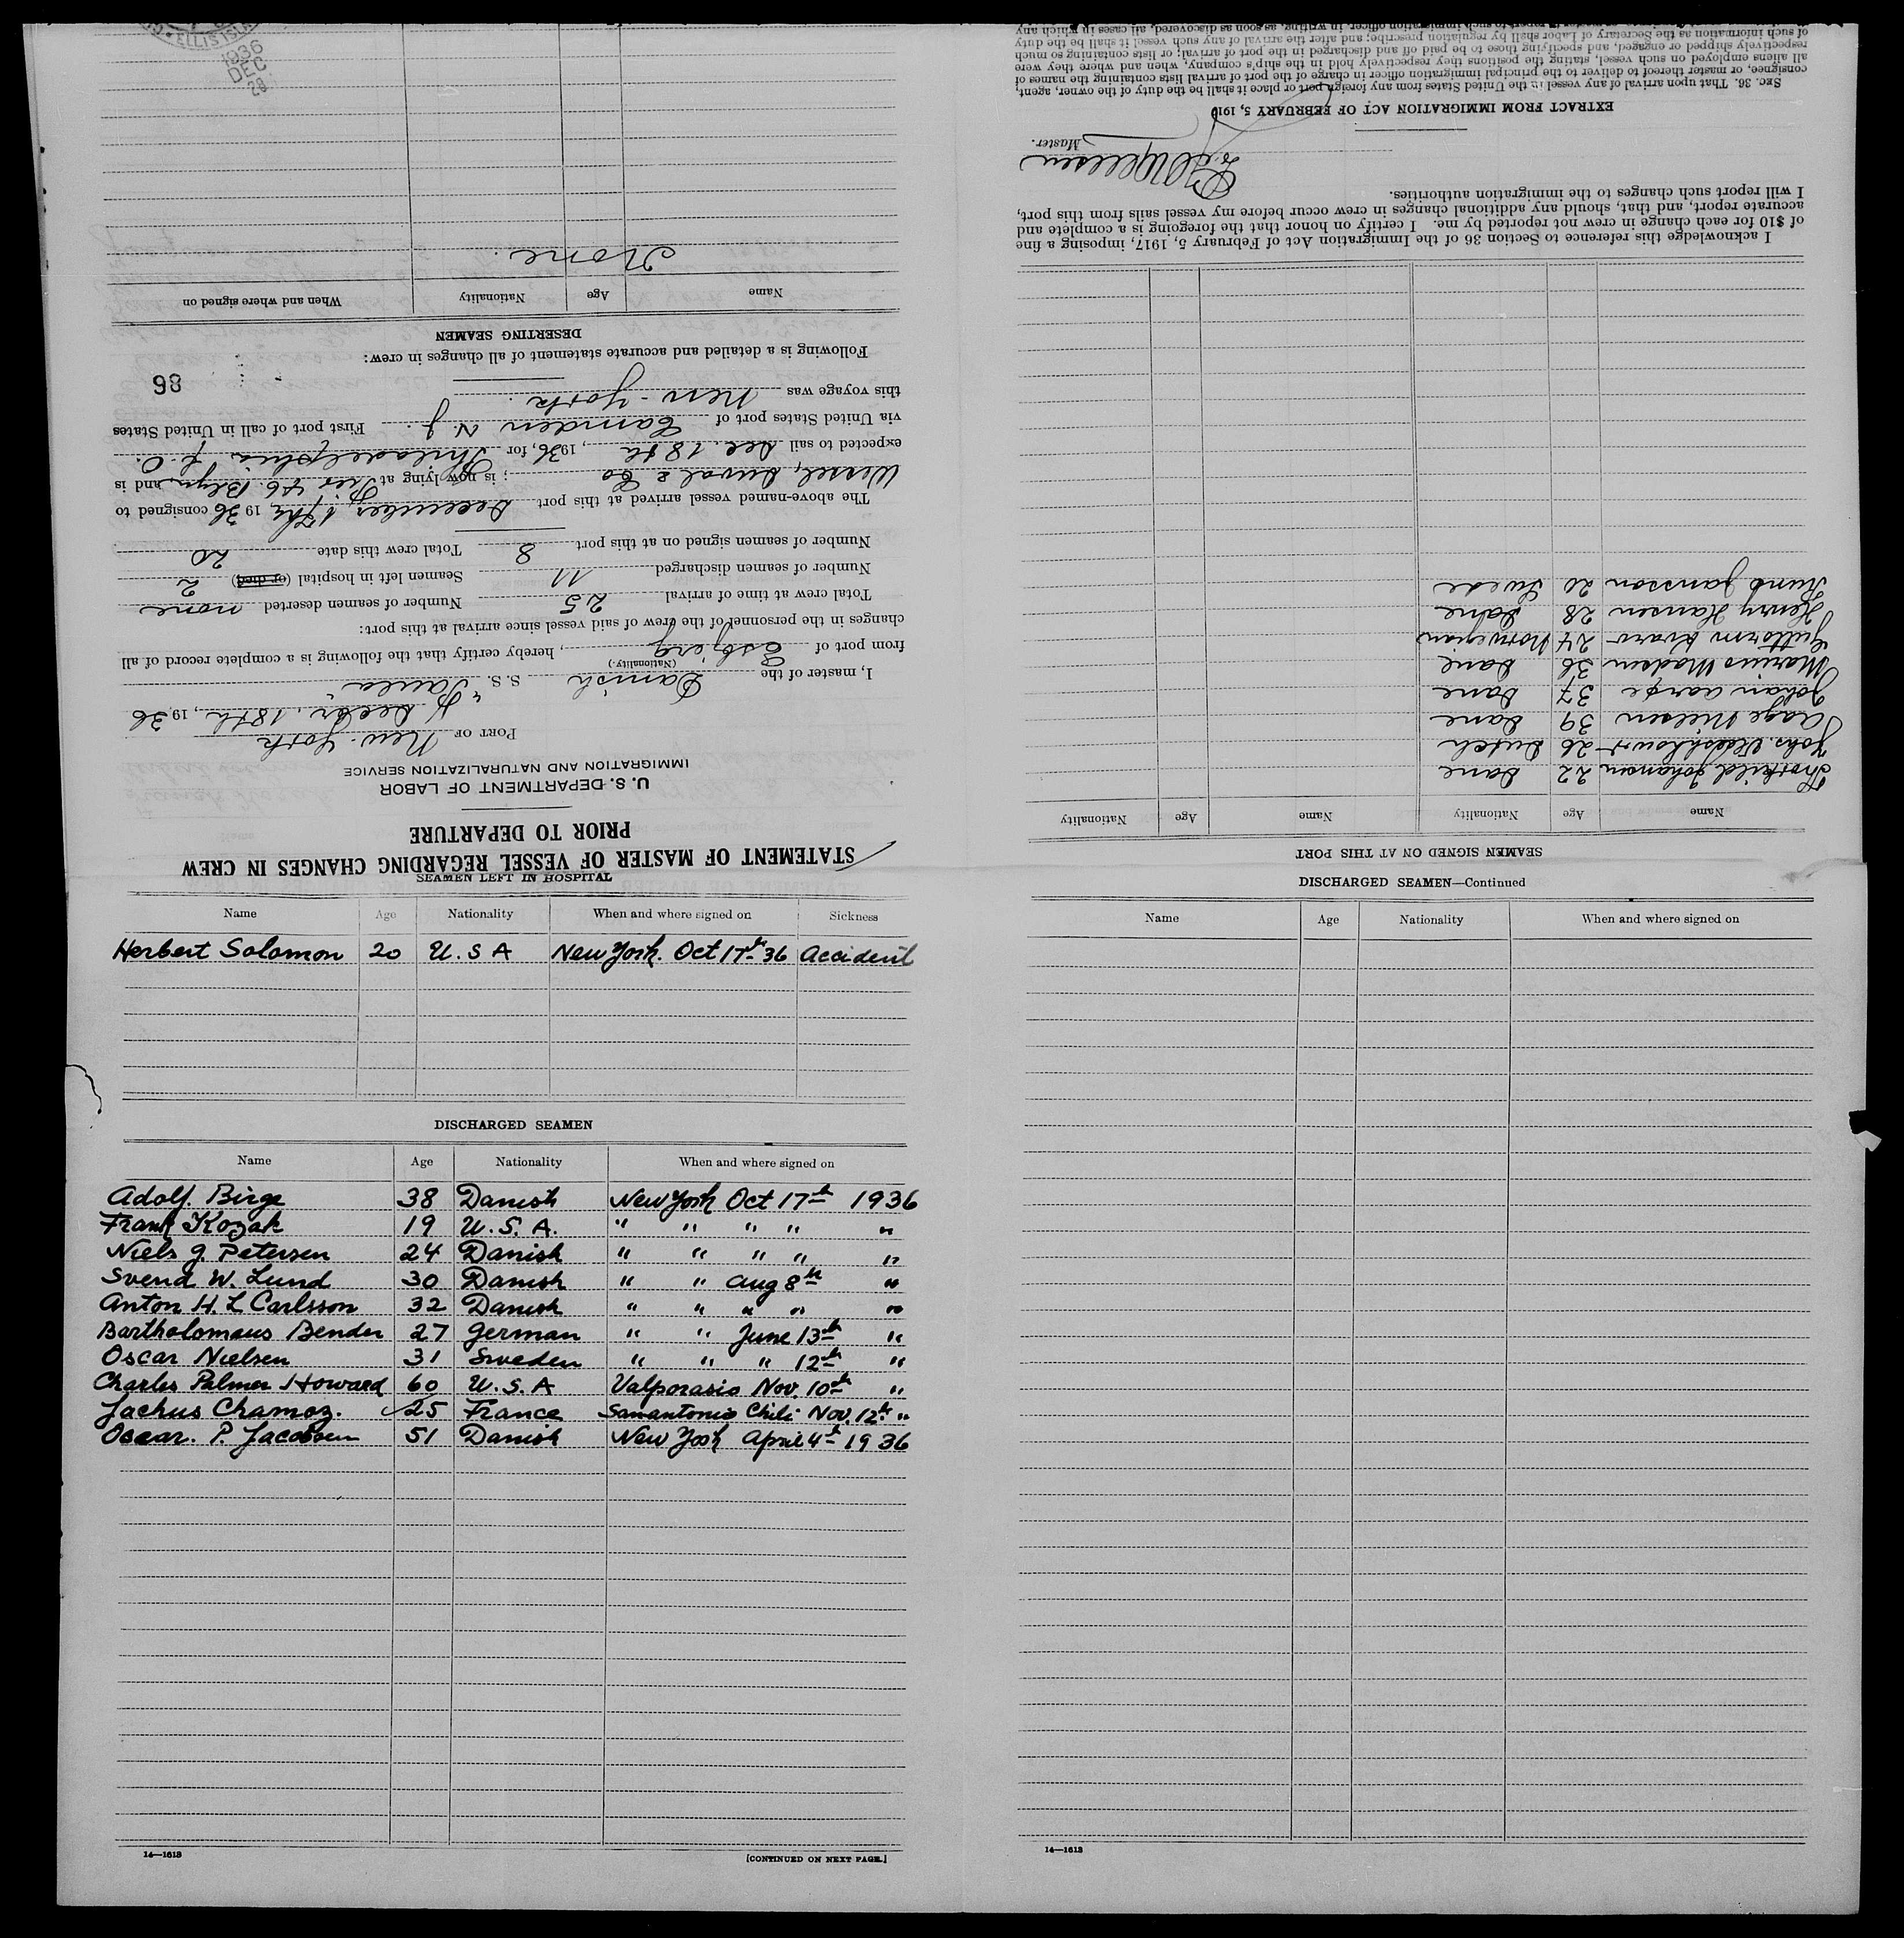 STATEMENT OF MASTER OF VESSEL REGARDING CHANGES IN CREW
PRIOR TO DEPARTURE
U. S. DEPARTMENT OF LABOR
IMMIGRATION AND NATURALIZATION SERVICE
PORT OF New-York
Decbr. 18th, 1936
I, master of the Danish S. S. "Paula"
(Nationality.)
from port of Esbjerg, hereby certify that the following is a complete record of all
changes in the personnel of the crew of said vessel since arrival at this port:
Total crew at time of arrival 25 Number of seamen deserted none
Number of seamen discharged 11 Seamen left in hospital (or died) 2
Number of seamen signed on at this port 8 Total crew this date 20
The above-named vessel arrived at this port December 17th, 1936 consigned to
Wessel, Duval & Co; is now lying at Pier 46 Blyn and is
expected to sail Dec. 18th, 1936, for Philadelphia
via United States port of Camden N J. First port of call in United States
this voyage was New-York.
86
Following is a detailed and accurate statement of all changes in crew:
DESERTING SEAMEN
Name Age Nationality When and where signed on
None.
ELLIS ISL
1936
DEC
SEAMEN LEFT IN HOSPITAL
Name Age Nationality When and where signed on Sickness
Herbert Solomon 20 U. S A New York. Oct 17th 36 Accident
DISCHARGED SEAMEN
Name Age Nationality When and where signed on
Adolf Birge 38 Danish New York Oct 17th 1936
Frank Kozak 19 U. S. A. " " " " "
Niels J. Petersen 24 Danish " " " " "
Svend W. Lund 30 Danish " " Aug 8th "
Anton H. L Carlsson 32 Danish " " " " "
Bartholomaus Bender 27 German " " June 13th "
Oscar Nielsen 31 Sweden " " " 12th "
Charles Palmer Howard 60 U. S. A Valporasio Nov. 10th "
Jachus Chamoz. 25 France Sanantonio Chili Nov. 12th "
Oscar. P. Jacobsen 51 Danish New York April 4th 1936
14—1613
[CONTINUED ON NEXT PAGE.]
DISCHARGED SEAMEN—Continued
Name Age Nationality When and where signed on
14—1613
SEAMEN SIGNED ON AT THIS PORT
Name Age Nationality Name Age Nationality
Thorkild Johansen 22 Dane
Johs. 26 Dutch
Aage Nielsen 39 Dane
Johan Aarøe 37 Dane
Marius Madsen 36 Dane
Guttorm Kvarv 24 Norwegian
Henry Hansen 28 Dane
Rune Jansson 20 Swede
I acknowledge this reference to Section 36 of the Immigration Act of February 5, 1917, imposing a fine
of $10 for each change in crew not reported by me. I certify on honor that the foregoing is a complete and
accurate report, and that, should any additional changes in crew occur before my vessel sails from this port,
I will report such changes to the immigration authorities.
Master.
EXTRACT FROM IMMIGRATION ACT OF FEBRUARY 5, 191
SEC. 36. That upon arrival of any vessel in the United States from any foreign port or place it shall be the duty of the owner, agent,
consignee, or master thereof to deliver to the principal immigration officer in charge of the port of arrival lists containing the names of
all aliens employed on such vessel, stating the positions they respectively hold in the ship's company, when and where they were
respectively shipped or engaged, and specifying those to be paid off and discharged in the port of arrival; or lists containing so much
of such information as the Secretary of Labor shall by regulation prescribe; and after the arrival of any such vessel it shall be the duty
immigration officer, in writing, as soon as discovered, all cases in which any